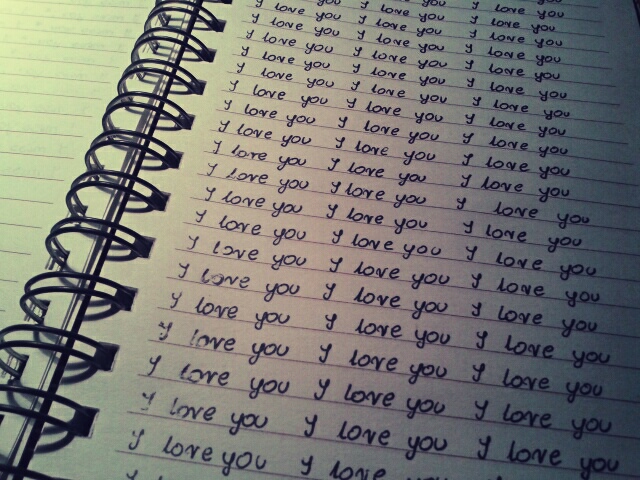 I love you I love you I love you
I love you I love you I love you
I love you I love you I love you
I love you I love you I love you
I love you I love you I love you
I love you I love you I love you
I love you I love you I love you
I love you I love you I love you
I love you I love you I love you
I love you I love you I love you
I love you I love you I love you
I love you I love you I love you
I love you I love you I love you
I love you I love you I love you
I love you I love you I love you
I love you I love you I love you
I love you I love you I love you
I love you I love you I love you
I love you I love you I love you
I love